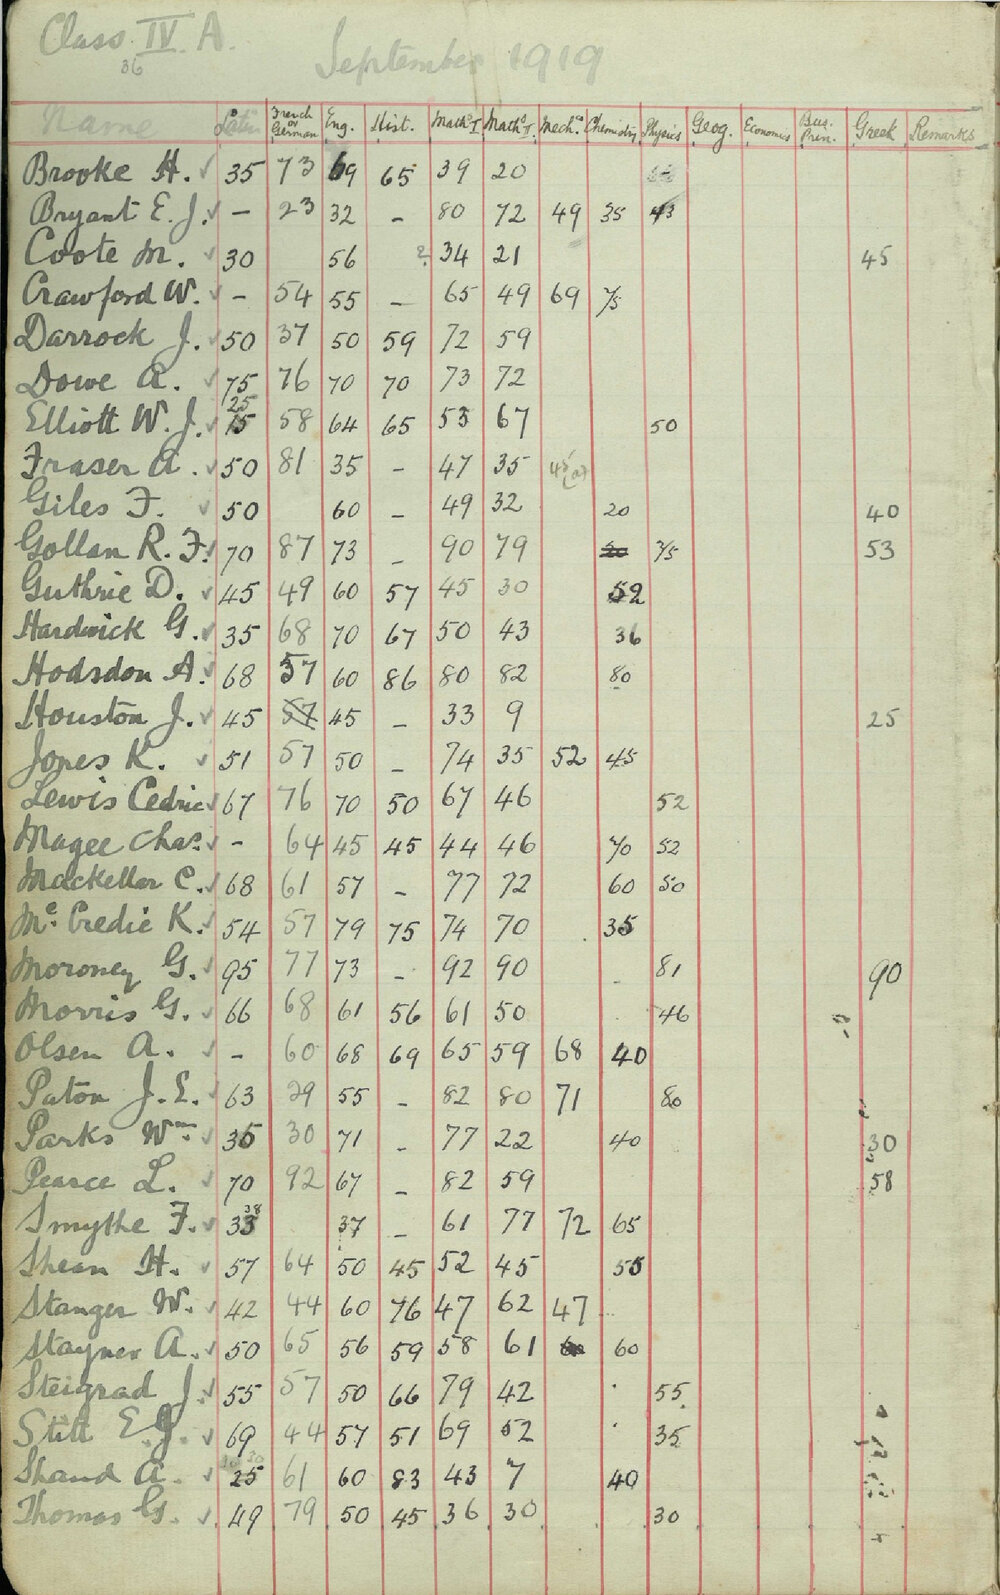 Class IV A.
36
September 1919
Name Latin French or German Eng. Hist. Maths I Maths II Mechs Chemistry Physics Geog. Economics Bus. Prin. Greek Remarks
Brooke H. ✓ 35 73 69 65 39 20
Bryant E. J. ✓ – 23 32 – 80 72 49 35 43
Coote M. ✓ 30 56 ? 34 21 45
Crawford W. ✓ – 54 55 – 65 49 69 75
Darrock J. ✓ 50 37 50 59 72 59
Dowe A. ✓ 75 76 70 70 73 72
Elliott W. J. ✓ 25 15 58 64 65 53 67 50
Fraser A. ✓ 50 81 35 – 47 35
Giles F. ✓ 50 60 – 49 32 20 40
Gollan R. F. ✓ 70 87 73 – 90 79 20 75 53
Guthrie D. ✓ 45 49 60 57 45 30 52
Hardwick G. ✓ 35 68 70 67 50 43 36
Hodsdon A. ✓ 68 57 60 86 80 82 80
Houston J. ✓ 45 57 45 – 33 9 25
Jones K. ✓ 51 57 50 – 74 35 52 45
Lewis Cedric ✓ 67 76 70 50 67 46 52
Magee Chas. ✓ – 64 45 45 44 46 70 52
Mackellar C. ✓ 68 61 57 – 77 72 60 50
Mc. Credie K. ✓ 54 57 79 75 74 70 35
Moroney G. ✓ 95 77 73 – 92 90 81 90
Morris G. ✓ 66 68 61 56 61 50 46
Olsen A. ✓ – 60 68 69 65 59 68 40
Paton J. E. ✓ 63 29 55 – 82 80 71 80
Parks Wm. ✓ 35 30 71 – 77 22 40 30
Pearce L. ✓ 70 92 67 – 82 59 58
Smythe F. ✓ 33 38 37 – 61 77 72 65
Shean H. ✓ 57 64 50 45 52 45 55
Stanger W. ✓ 42 44 60 76 47 62 47
Stayner A. ✓ 50 65 56 59 58 61 60
Steigrad J. ✓ 55 57 50 66 79 42 55
Stitt E. J. ✓ 69 44 57 51 69 52 35
Shand A. ✓ 25 61 60 83 43 7 40
Thomas G. ✓ 49 79 50 45 36 30 30